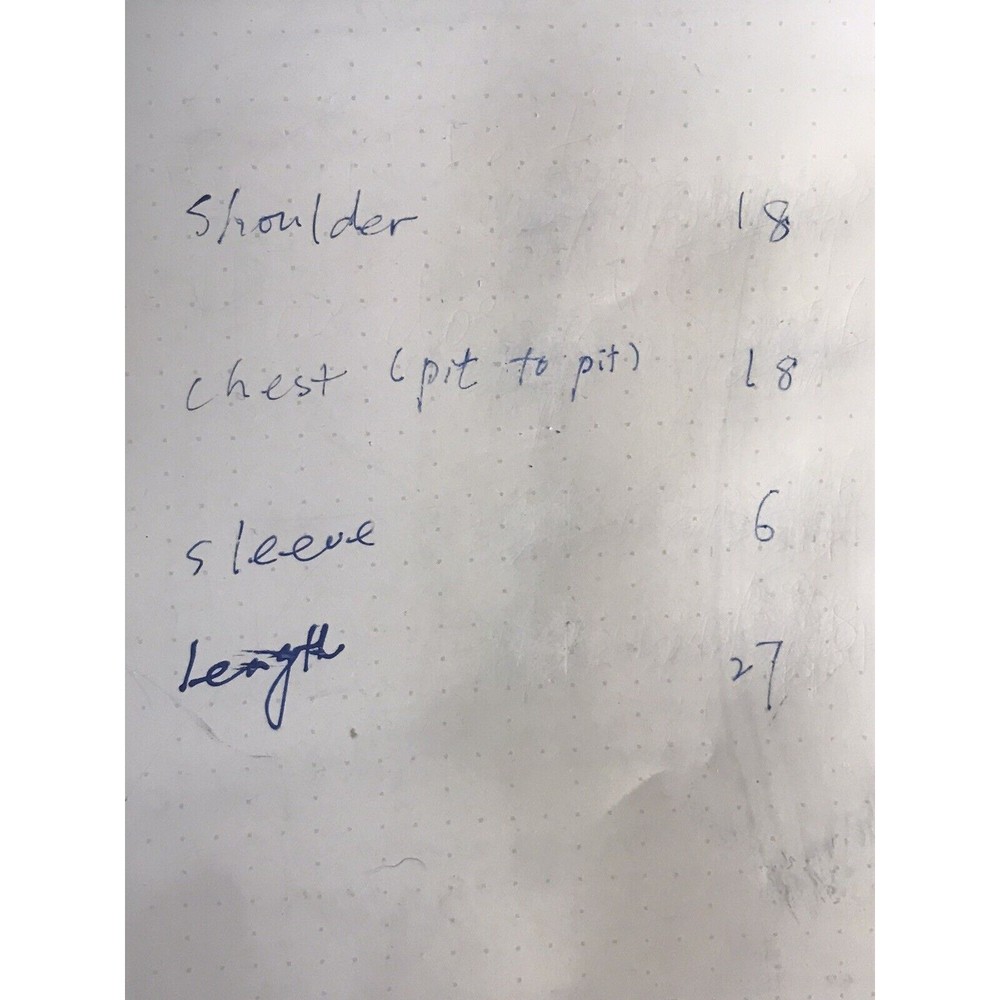 Shoulder 18
chest (pit to pit) 18
sleeve 6
Length 27